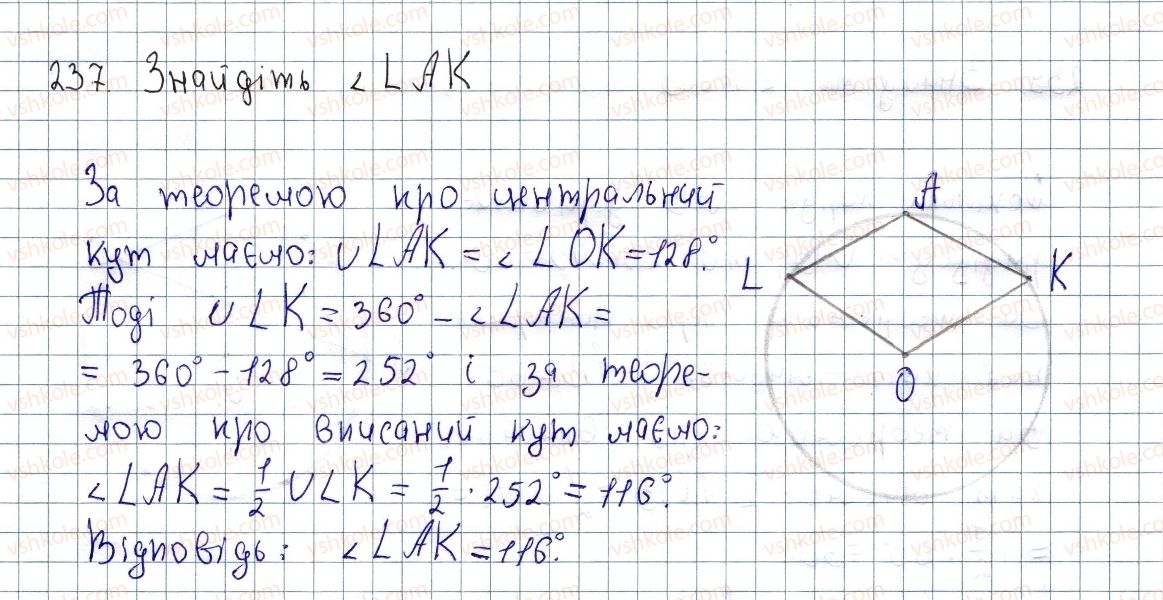 237. Знайдіть ∠LAK
За теоремою про центральний
кут маємо: ∪LAK = ∠LOK = 128°.
Тоді ∪LK = 360° - ∠LAK =
= 360° - 128° = 252° і за теоре-
мою про вписаний кут маємо:
∠LAK = 1/2 ∪LK = 1/2 · 252° = 116°.
Відповідь: ∠LAK = 116°.
A
L
K
O
vshkole.com